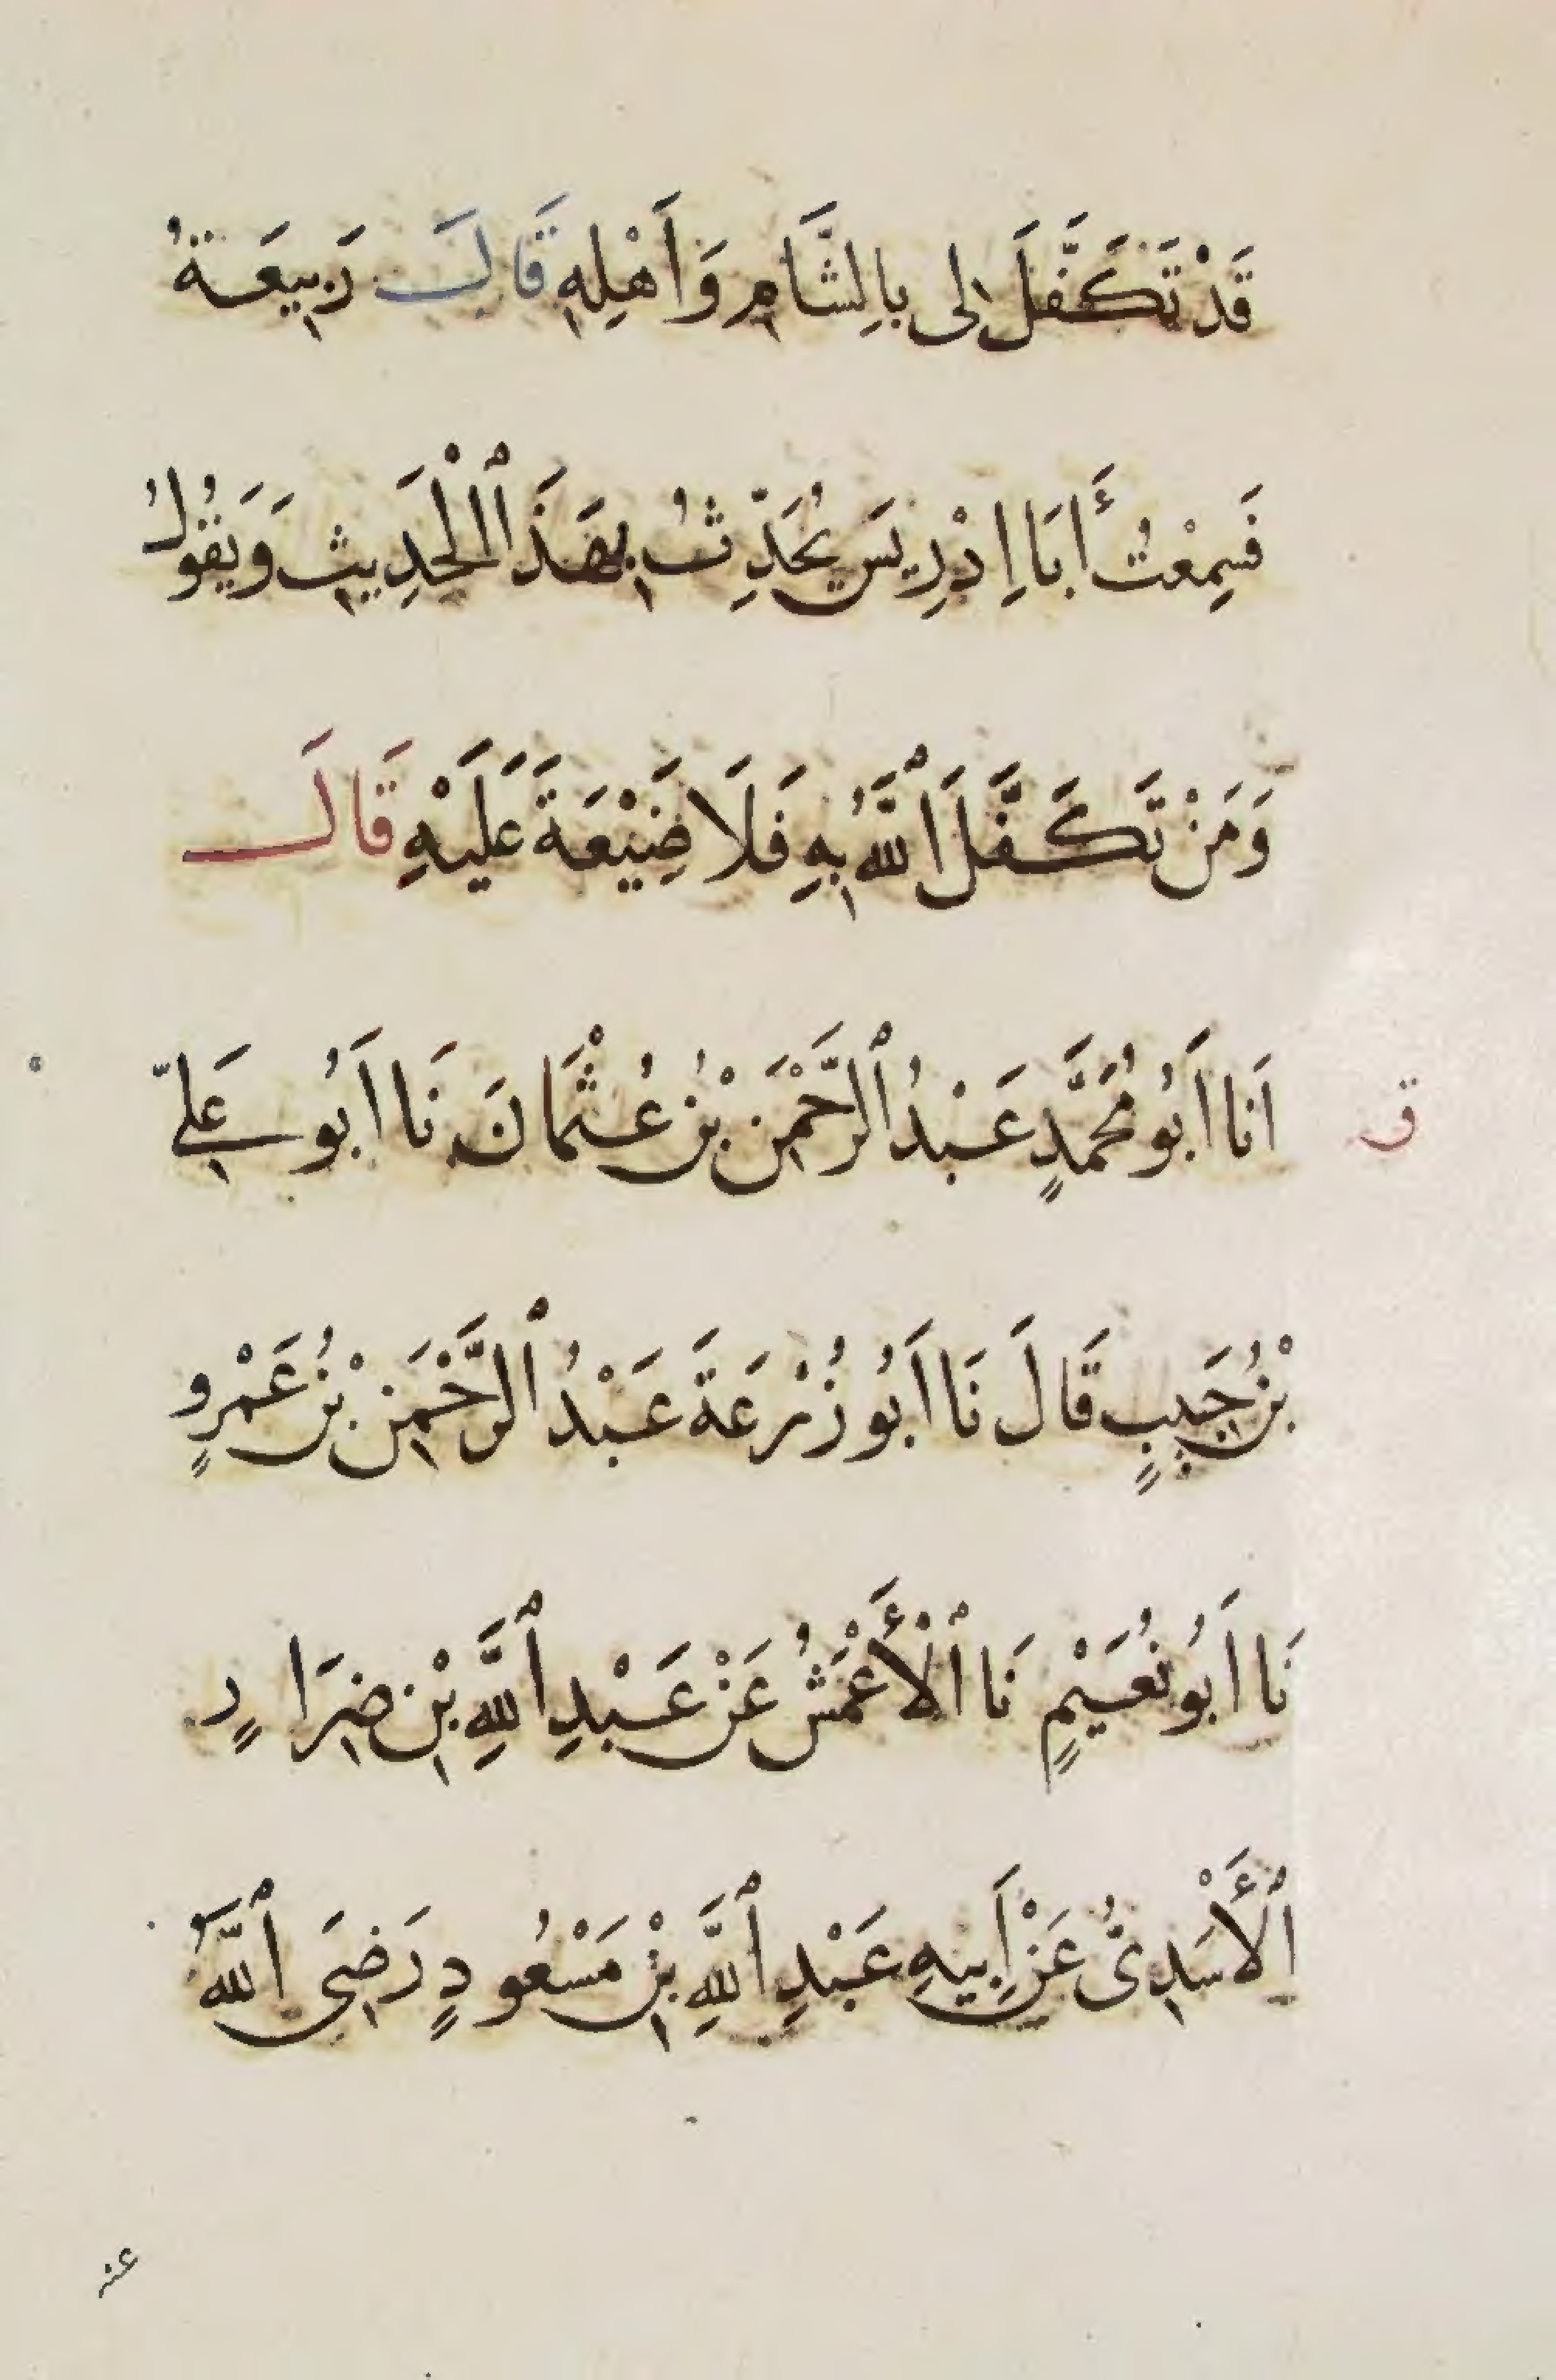 قَدْ تَكَفَّلَ لِى بِالشَّامِ وَاَهْلِهِ قَالَ رَبِيعَةُ
فَسَمِعْتُ أَبَا اِدْرِيسَ يُحَدِّثُ بِهَذَا ٱلْحَدِيثِ وَيَقُولُ
وَمَنْ تَكَفَّلَ ٱللَّهُ بِهِ فَلَا ضَيْعَةَ عَلَيْهِ قَالَ
اَنَا اَبُو مُحَمَّدٍ عَبْدُ ٱلرَّحْمَنِ بْنُ عُثْمَانَ نَا اَبُو عَلِىّ
بْنُ حَبِيبٍ قَالَ نَا اَبُو زُرْعَةَ عَبْدُ ٱلرَّحْمَنِ بْنُ عَمْرٍو
نَا اَبُو نُعَيْمٍ نَا ٱلْأَعْمَشُ عَنْ عَبْدِ ٱللَّهِ بْنِ ضِرَارٍ
ٱلْأَسَدِىُّ عَنْ اَبِيهِ عَبْدِ ٱللَّهِ بْنِ مَسْعُودٍ رَضِىَ ٱللَّهُ
عنه